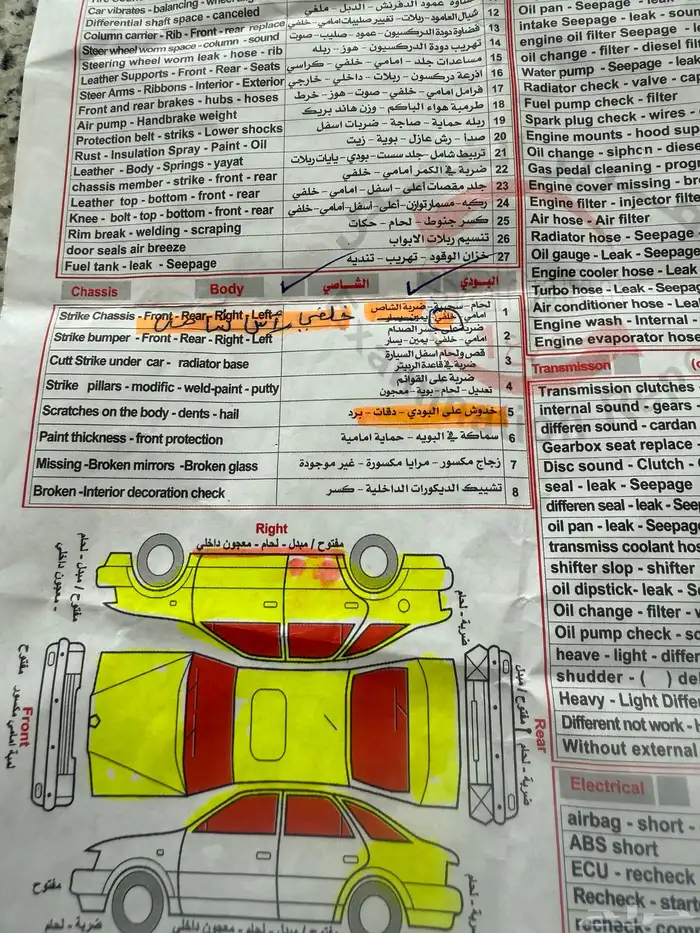 Car vibrates - balancing - wheel
Differential shaft space - canceled
12
Column carrier - Rib - Front - rear replace
ثيال العامود - ربلات - تغيير صليبات امامي - خلفي
13
Steer wheel worm space - column - sound
فضاوة دودة الدركسيون - عمود - صليب - صوت
14
Steering wheel worm leak - hose - rib
تهريب دودة الدركسيون - هوز - ربله
15
Leather Supports - Front - Rear - Seats
مساعدات جلد - امامي - خلفي - كراسي
16
Steer Arms - Ribbons - Interior - Exterior
اذرعة دركسون - ربلات - داخلي - خارجي
17
Front and rear brakes - hubs - hoses
فرامل امامي - خلفي - صوت - هوز - خرط
18
Air pump - Handbrake weight
طرمبة هواء الباكم - وزن هاند بريك
19
Protection belt - striks - Lower shocks
ربله حماية - صاجة - ضربات اسفل
20
Rust - Insulation Spray - Paint - Oil
صدا - رش عازل - بوية - زيت
21
Leather - Body - Springs - yayat
تربيط شامل - جلد سست - بودي - يايات ربلات
22
chassis member - strike - front - rear
ضربة في الكمر أمامي - خلفي
23
Leather top - bottom - front - rear
جلد مقصات أعلى - اسفل - امامي - خلفي
24
Knee - bolt - top - bottom - front - rear
ركبه - مسمار توازن - أعلى - اسفل - أمامي - خلفي
25
Rim break - welding - scraping
كسر جنوط - لحام - حكات
26
door seals air breeze
تنسيم ربلات الابواب
27
Fuel tank - leak - Seepage
خزان الوقود - تهريب - تنديه
Chassis
Body
الشاصي
البودي
Strike Chassis - Front - Rear - Right - Left
لحام - سحبية - ضربة الشاص
امامي - خلفي - يمين - يسار
1
خلفي رأس
Strike bumper - Front - Rear - Right - Left
ضربة على جسر الصدام
امامي - خلفي - يمين - يسار
2
Cutt Strike under car - radiator base
قص ولحام اسفل السيارة
ضربة في قاعدة الرديتر
3
Strike pillars - modific - weld-paint - putty
ضربة على القوائم
تعديل - لحام - بوية - معجون
4
Scratches on the body - dents - hail
خدوش على البودي - دقات - برد
5
Paint thickness - front protection
سماكة في البويه - حماية امامية
6
Missing -Broken mirrors -Broken glass
زجاج مكسور - مرايا مكسورة - غير موجودة
7
Broken -Interior decoration check
تشييك الديكورات الداخلية - كسر
8
Oil pan - Seepage - leak
intake Seepage - leak - soun
engine oil filter Seepage - le
oil change - filter - diesel f
Water pump - Seepage - leak
Radiator check - valve - ca
Fuel pump check - filter
Spark plug check - wires -
Engine mounts - hood sup
Oil change - siphcn - diese
Gas pedal cleaning - prog
Engine cover missing - bre
Engine filter - injector filte
Air hose - Air filter
Radiator hose - Seepage -
Oil gauge - Leak - Seepag
Engine cooler hose - Leak
Turbo hose - Leak - Seepag
Air conditioner hose - Lea
Engine wash - Internal -
Engine evaporator hose
Transmisson
Transmission clutches -
internal sound - gears -
differen sound - cardan
Gearbox seat replace -
Disc sound - Clutch -
seal - leak - Seepage
differen seal - leak - See
oil pan - leak - Seepage
transmiss coolant hos
shifter slop - shifter
oil dipstick- leak - Se
Oil change - filter -
Oil pump check - so
heave - light - differ
shudder - ( ) del
Heavy - Light Differ
Different not work - H
Without external
Electrical
airbag - short -
ABS short
ECU - recheck
Recheck - start
recheck- com
Right
مفتوح / مبدل - لحام - معجون داخلي
مفتوح / مبدل - لحام
- معجون داخلي
ضربة - لحام
Front
مفتوح
لمبة امامي مكسور
Rear
مبدل / مفتوح
ضربة - لحام
مفتوح
ضربة - لحام
مفتوح / مبدل - لحام - معجون داخلي